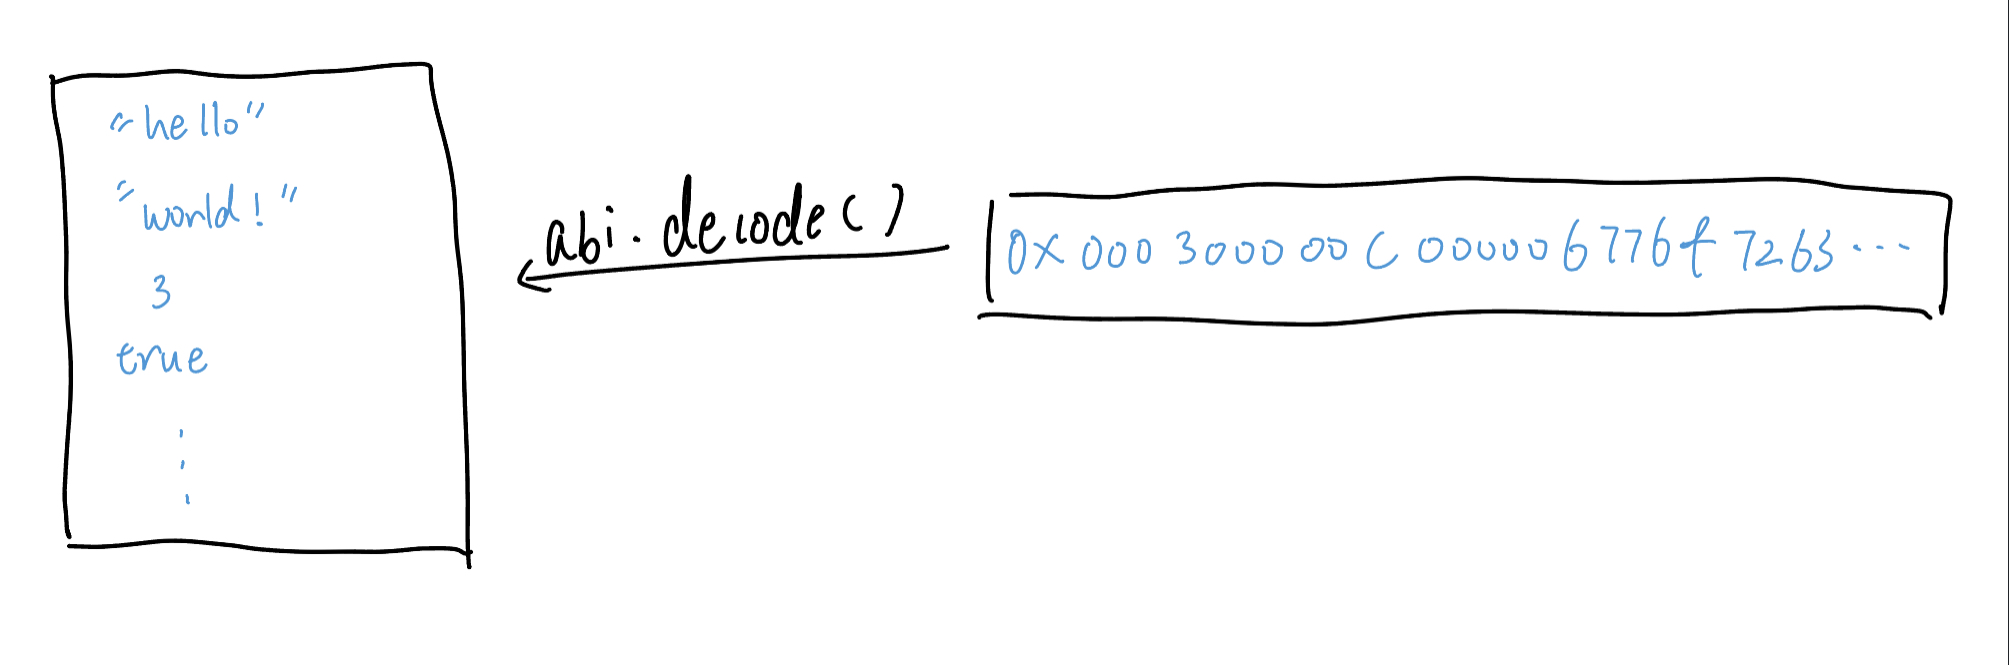 "hello"
"world!"
3
true
abi.decode()
0x000300000C000006776f7263...